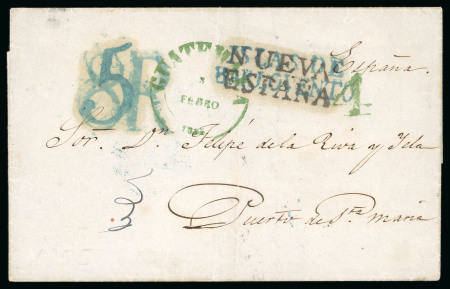 NUEVA
ESPAÑA
España.
5R
GUATEMALA
3
FEBRO
4
Sor. Dn. Felipe de la Riva y Ysla
Puerto de Sta. Maria